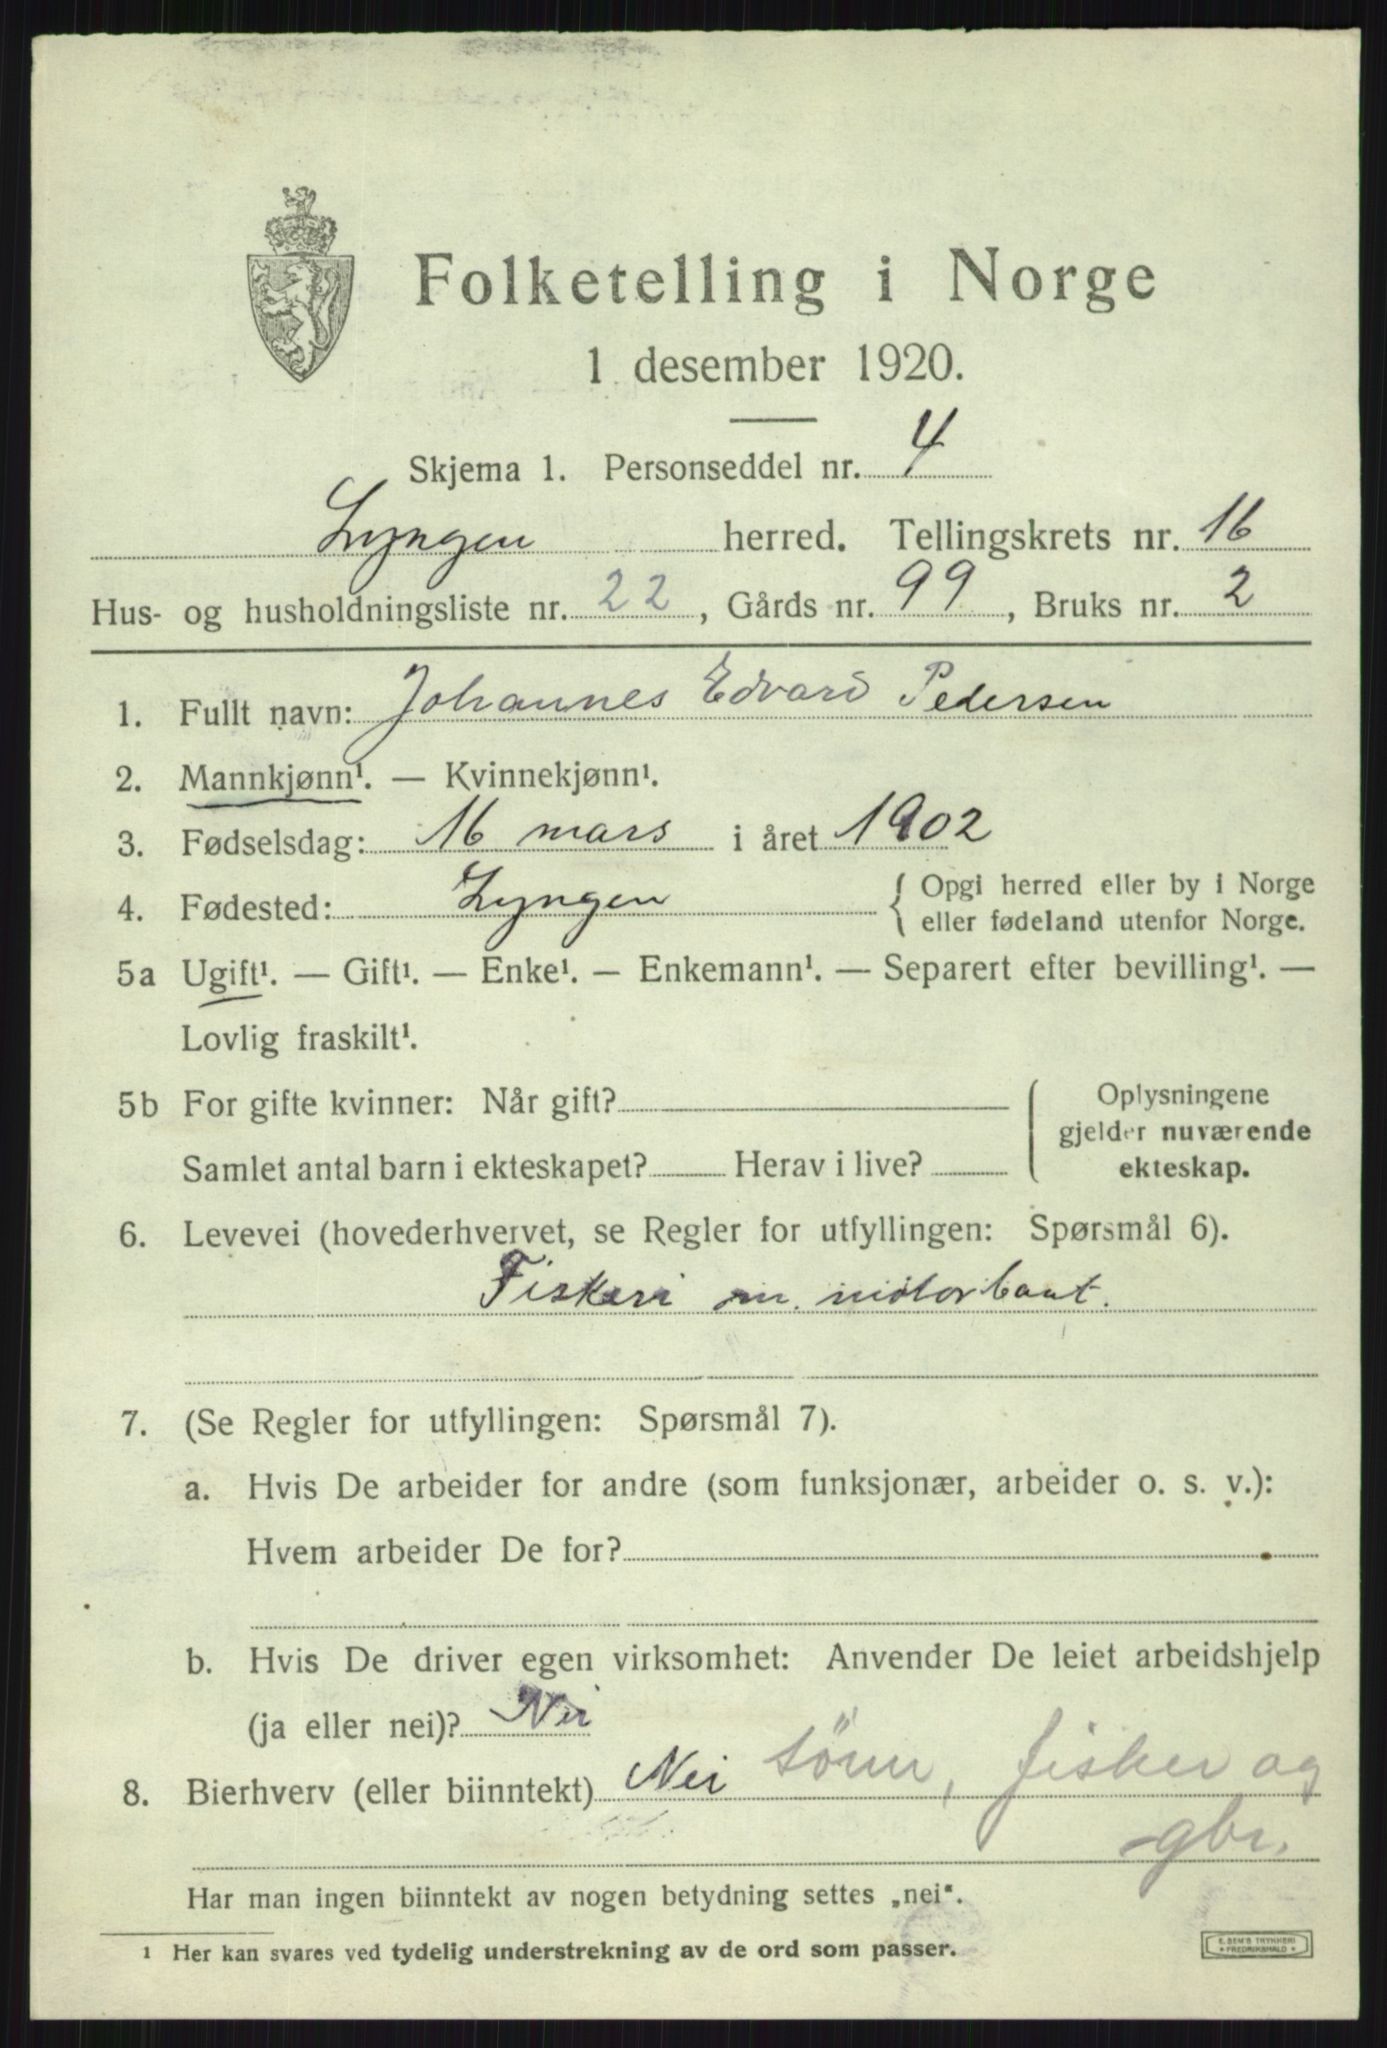 Folketelling i Norge
1 desember 1920.
Skjema 1. Personseddel nr. 4
Lyngen herred. Tellingskrets nr. 16
Hus- og husholdningsliste nr. 22, Gårds nr. 99, Bruks nr. 2
1. Fullt navn: Johannes Edvard Pedersen
2. Mannkjønn¹. — Kvinnekjønn¹.
3. Fødselsdag: 16 mars i året 1902
4. Fødested: Lyngen { Opgi herred eller by i Norge
eller fødeland utenfor Norge.
5a Ugift¹. — Gift¹. — Enke¹. — Enkemann¹. — Separert efter bevilling¹. —
Lovlig fraskilt¹.
5b For gifte kvinner: Når gift? Oplysningene
gjelder nuværende
Samlet antal barn i ekteskapet? Herav i live? ekteskap.
6. Levevei (hovederhvervet, se Regler for utfyllingen: Spørsmål 6).
Fiskeri m. motorbaat.
7. (Se Regler for utfyllingen: Spørsmål 7).
a. Hvis De arbeider for andre (som funksjonær, arbeider o. s. v.):
Hvem arbeider De for?
b. Hvis De driver egen virksomhet: Anvender De leiet arbeidshjelp
(ja eller nei)? Nei
8. Bierhverv (eller biinntekt) Nei sönn, fisker og
gbr.
Har man ingen biinntekt av nogen betydning settes „nei“.
¹ Her kan svares ved tydelig understrekning av de ord som passer.
E. SEM'S TRYKKERI
* FREDRIKSHALD *